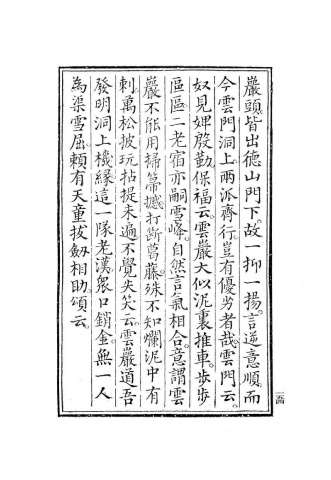 巖頭皆出德山門下。故一抑一揚。言逆意順。而
今雲門洞上。兩派齊行。豈有優劣者哉。雲門云。
奴見婢殷勤。保福云。雲巖大似泥裏推車。步步
區區。二老宿亦嗣雪峰。自然言氣相合。意謂雲
巖不能用掃箒撼打斷葛藤。殊不知爛泥中有
刺。萬松披玩拈提未遍。不覺失笑云。雲巖道吾
發明洞上機緣。這一隊老漢。眾口銷金。無一人
為渠雪屈。賴有天童拔劍相助。頌云。